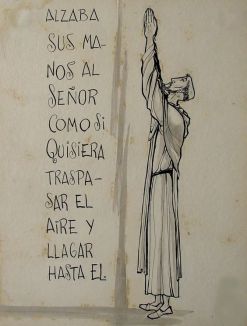 ALZABA
SUS MA-
NOS AL
SEÑOR
COMO SI
QUISIERA
TRASPA-
SAR EL
AIRE Y
LLAGAR
HASTA EL